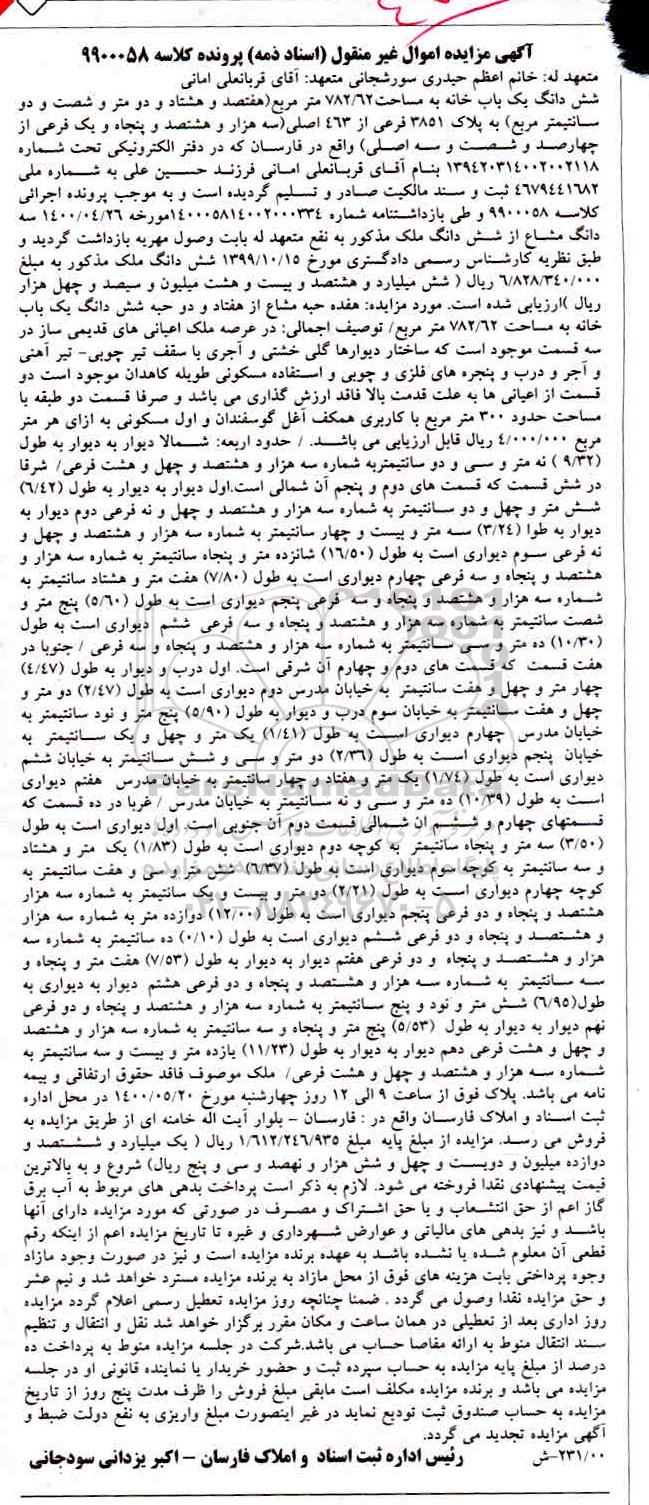 آگهی مزایده اموال غیر منقول (اسناد ذمه) پرونده کلاسه ۹۹۰۰۰۵۸
متعهد له: خانم اعظم حیدری سورشجانی متعهد: آقای قربانعلی امانی
شش دانگ یک باب خانه به مساحت ۷۸۲/۶۲ متر مربع(هفتصد و هشتاد و دو متر و شصت و دو
سانتیمتر مربع) به پلاک ۳۸۵۱ فرعی از ۴۶۳ اصلی(سه هزار و هشتصد و پنجاه و یک فرعی از
چهارصد و شصت و سه اصلی) واقع در فارسان که در دفتر الکترونیکی تحت شماره
۱۳۹۴۲۰۳۱۴۰۰۲۰۰۲۱۱۸ بنام آقای قربانعلی امانی فرزند حسین علی به شماره ملی
۴۶۷۹۴۴۱۶۸۲ ثبت و سند مالکیت صادر و تسلیم گردیده است و به موجب پرونده اجرائی
کلاسه ۹۹۰۰۰۵۸ و طی بازداشتنامه شماره ۱۴۰۰۰۵۸۱۴۰۰۲۰۰۰۳۳۴مورخه ۱۴۰۰/۰۴/۲۶ سه
دانگ مشاع از شش دانگ ملک مذکور به نفع متعهد له بابت وصول مهریه بازداشت گردید و
طبق نظریه کارشناس رسمی دادگستری مورخ ۱۳۹۹/۱۰/۱۵ شش دانگ ملک مذکور به مبلغ
۶/۸۲۸/۳۴۰/۰۰۰ ریال ( شش میلیارد و هشتصد و بیست و هشت میلیون و سیصد و چهل هزار
ریال )ارزیابی شده است. مورد مزایده: هفده حبه مشاع از هفتاد و دو حبه شش دانگ یک باب
خانه به مساحت ۷۸۲/۶۲ متر مربع/ توصیف اجمالی: در عرصه ملک اعیانی های قدیمی ساز در
سه قسمت موجود است که ساختار دیوارها گلی خشتی و آجری با سقف تیر چوبی- تیر آهنی
و آجر و درب و پنجره های فلزی و چوبی و استفاده مسکونی طویله کاهدان موجود است دو
قسمت از اعیانی ها به علت قدمت بالا فاقد ارزش گذاری می باشد و صرفا قسمت دو طبقه با
مساحت حدود ۳۰۰ متر مربع با کاربری همکف آغل گوسفندان و اول مسکونی به ازای هر متر
مربع ۴/۰۰۰/۰۰۰ ریال قابل ارزیابی می باشد. / حدود اربعه: شمالا دیوار به دیوار به طول
(۹/۳۲ ) نه متر و سی و دو سانتیمتربه شماره سه هزار و هشتصد و چهل و هشت فرعی/ شرقا
در شش قسمت که قسمت های دوم و پنجم آن شمالی است.اول دیوار به دیوار به طول (۶/۴۲)
شش متر و چهل و دو سانتیمتر به شماره سه هزار و هشتصد و چهل و نه فرعی دوم دیوار به
دیوار به طوا (۳/۲۴) سه متر و بیست و چهار سانتیمتر به شماره سه هزار و هشتصد و چهل و
نه فرعی سوم دیواری است به طول (۱۶/۵۰) شانزده متر و پنجاه سانتیمتر به شماره سه هزار و
هشتصد و پنجاه و سه فرعی چهارم دیواری است به طول (۷/۸۰) هفت متر و هشتاد سانتیمتر به
شماره سه هزار و هشتصد و پنجاه و سه فرعی پنجم دیواری است به طول (۵/۶۰) پنج متر و
شصت سانتیمتر به شماره سه هزار و هشتصد و پنجاه و سه فرعی ششم دیواری است به طول
(۱۰/۳۰) ده متر و سی سانتیمتر به شماره سه هزار و هشتصد و پنجاه و سه فرعی / جنوبا در
هفت قسمت که قسمت های دوم و چهارم آن شرقی است. اول درب و دیوار به طول (۴/۴۷)
چهار متر و چهل و هفت سانتیمتر به خیابان مدرس دوم دیواری است به طول (۲/۴۷) دو متر و
چهل و هفت سانتیمتر به خیابان سوم درب و دیوار به طول (۵/۹۰) پنج متر و نود سانتیمتر به
خیابان مدرس چهارم دیواری است به طول (۱/۴۱) یک متر و چهل و یک سانتیمتر به
خیابان پنجم دیواری است به طول (۲/۳۶) دو متر و سی و شش سانتیمتر به خیابان ششم
دیواری است به طول (۱/۷۴) یک متر و هفتاد و چهار سانتیمتر به خیابان مدرس هفتم دیواری
است به طول (۱۰/۳۹) ده متر و سی و نه سانتیمتر به خیابان مدرس / غربا در ده قسمت که
قسمتهای چهارم و ششم ان شمالی قسمت دوم آن جنوبی است. اول دیواری است به طول
(۳/۵۰) سه متر و پنجاه سانتیمتر به کوچه دوم دیواری است به طول (۱/۸۳) یک متر و هشتاد
و سه سانتیمتر به کوچه سوم دیواری است به طول (۶/۳۷) شش متر و سی و هفت سانتیمتر به
کوچه چهارم دیواری است به طول (۲/۲۱) دو متر و بیست و یک سانتیمتر به شماره سه هزار
هشتصد و پنجاه و دو فرعی پنجم دیواری است به طول (۱۲/۰۰) دوازده متر به شماره سه هزار
و هشتصد و پنجاه و دو فرعی ششم دیواری است به طول (۰/۱۰) ده سانتیمتر به شماره سه
هزار و هشتصد و پنجاه و دو فرعی هفتم دیوار به دیوار به طول (۷/۵۳) هفت متر و پنجاه و
سه سانتیمتر به شماره سه هزار و هشتصد و پنجاه و دو فرعی هشتم دیوار به دیواری به
طول(۶/۹۵) شش متر و نود و پنج سانتیمتر به شماره سه هزار و هشتصد و پنجاه و دو فرعی
نهم دیوار به دیوار به طول (۵/۵۳) پنج متر و پنجاه و سه سانتیمتر به شماره سه هزار و هشتصد
و چهل و هشت فرعی دهم دیوار به دیوار به طول (۱۱/۲۳) یازده متر و بیست و سه سانتیمتر به
شماره سه هزار و هشتصد و چهل و هشت فرعی/ ملک موصوف فاقد حقوق ارتفاقی و بیمه
نامه می باشد. پلاک فوق از ساعت ۹ الی ۱۲ روز چهارشنبه مورخ ۱۴۰۰/۰۵/۲۰ در محل اداره
ثبت اسناد و املاک فارسان واقع در : فارسان - بلوار آیت اله خامنه ای از طریق مزایده به
فروش می رسد. مزایده از مبلغ پایه مبلغ ۱/۶۱۲/۲۴۶/۹۳۵ ریال ( یک میلیارد و ششصد و
دوازده میلیون و دویست و چهل و شش هزار و نهصد و سی و پنج ریال) شروع و به بالاترین
قیمت پیشنهادی نقدا فروخته می شود. لازم به ذکر است پرداخت بدهی های مربوط به آب برق
گاز اعم از حق انتشعاب و یا حق اشتراک و مصرف در صورتی که مورد مزایده دارای آنها
باشد و نیز بدهی های مالیاتی و عوارض شهرداری و غیره تا تاریخ مزایده اعم از اینکه رقم
قطعی آن معلوم شده یا نشده باشد به عهده برنده مزایده است و نیز در صورت وجود مازاد
وجوه پرداختی بابت هزینه های فوق از محل مازاد به برنده مزایده مسترد خواهد شد و نیم عشر
و حق مزایده نقدا وصول می گردد . ضمنا چنانچه روز مزایده تعطیل رسمی اعلام گردد مزایده
روز اداری بعد از تعطیلی در همان ساعت و مکان مقرر برگزار خواهد شد نقل و انتقال و تنظیم
سند انتقال منوط به ارائه مفاصا حساب می باشد.شرکت در جلسه مزایده منوط به پرداخت ده
درصد از مبلغ پایه مزایده به حساب سپرده ثبت و حضور خریدار یا نماینده قانونی او در جلسه
مزایده می باشد و برنده مزایده مکلف است مابقی مبلغ فروش را ظرف مدت پنج روز از تاریخ
مزایده به حساب صندوق ثبت تودیع نماید در غیر اینصورت مبلغ واریزی به نفع دولت ضبط و
آگهی مزایده تجدید می گردد.
۲۳۱/۰۰-ش رئیس اداره ثبت اسناد و املاک فارسان - اکبر یزدانی سودجانی
ParsNamadData
۰۲۱-۸۸۳۴۹۶۷۰-۵